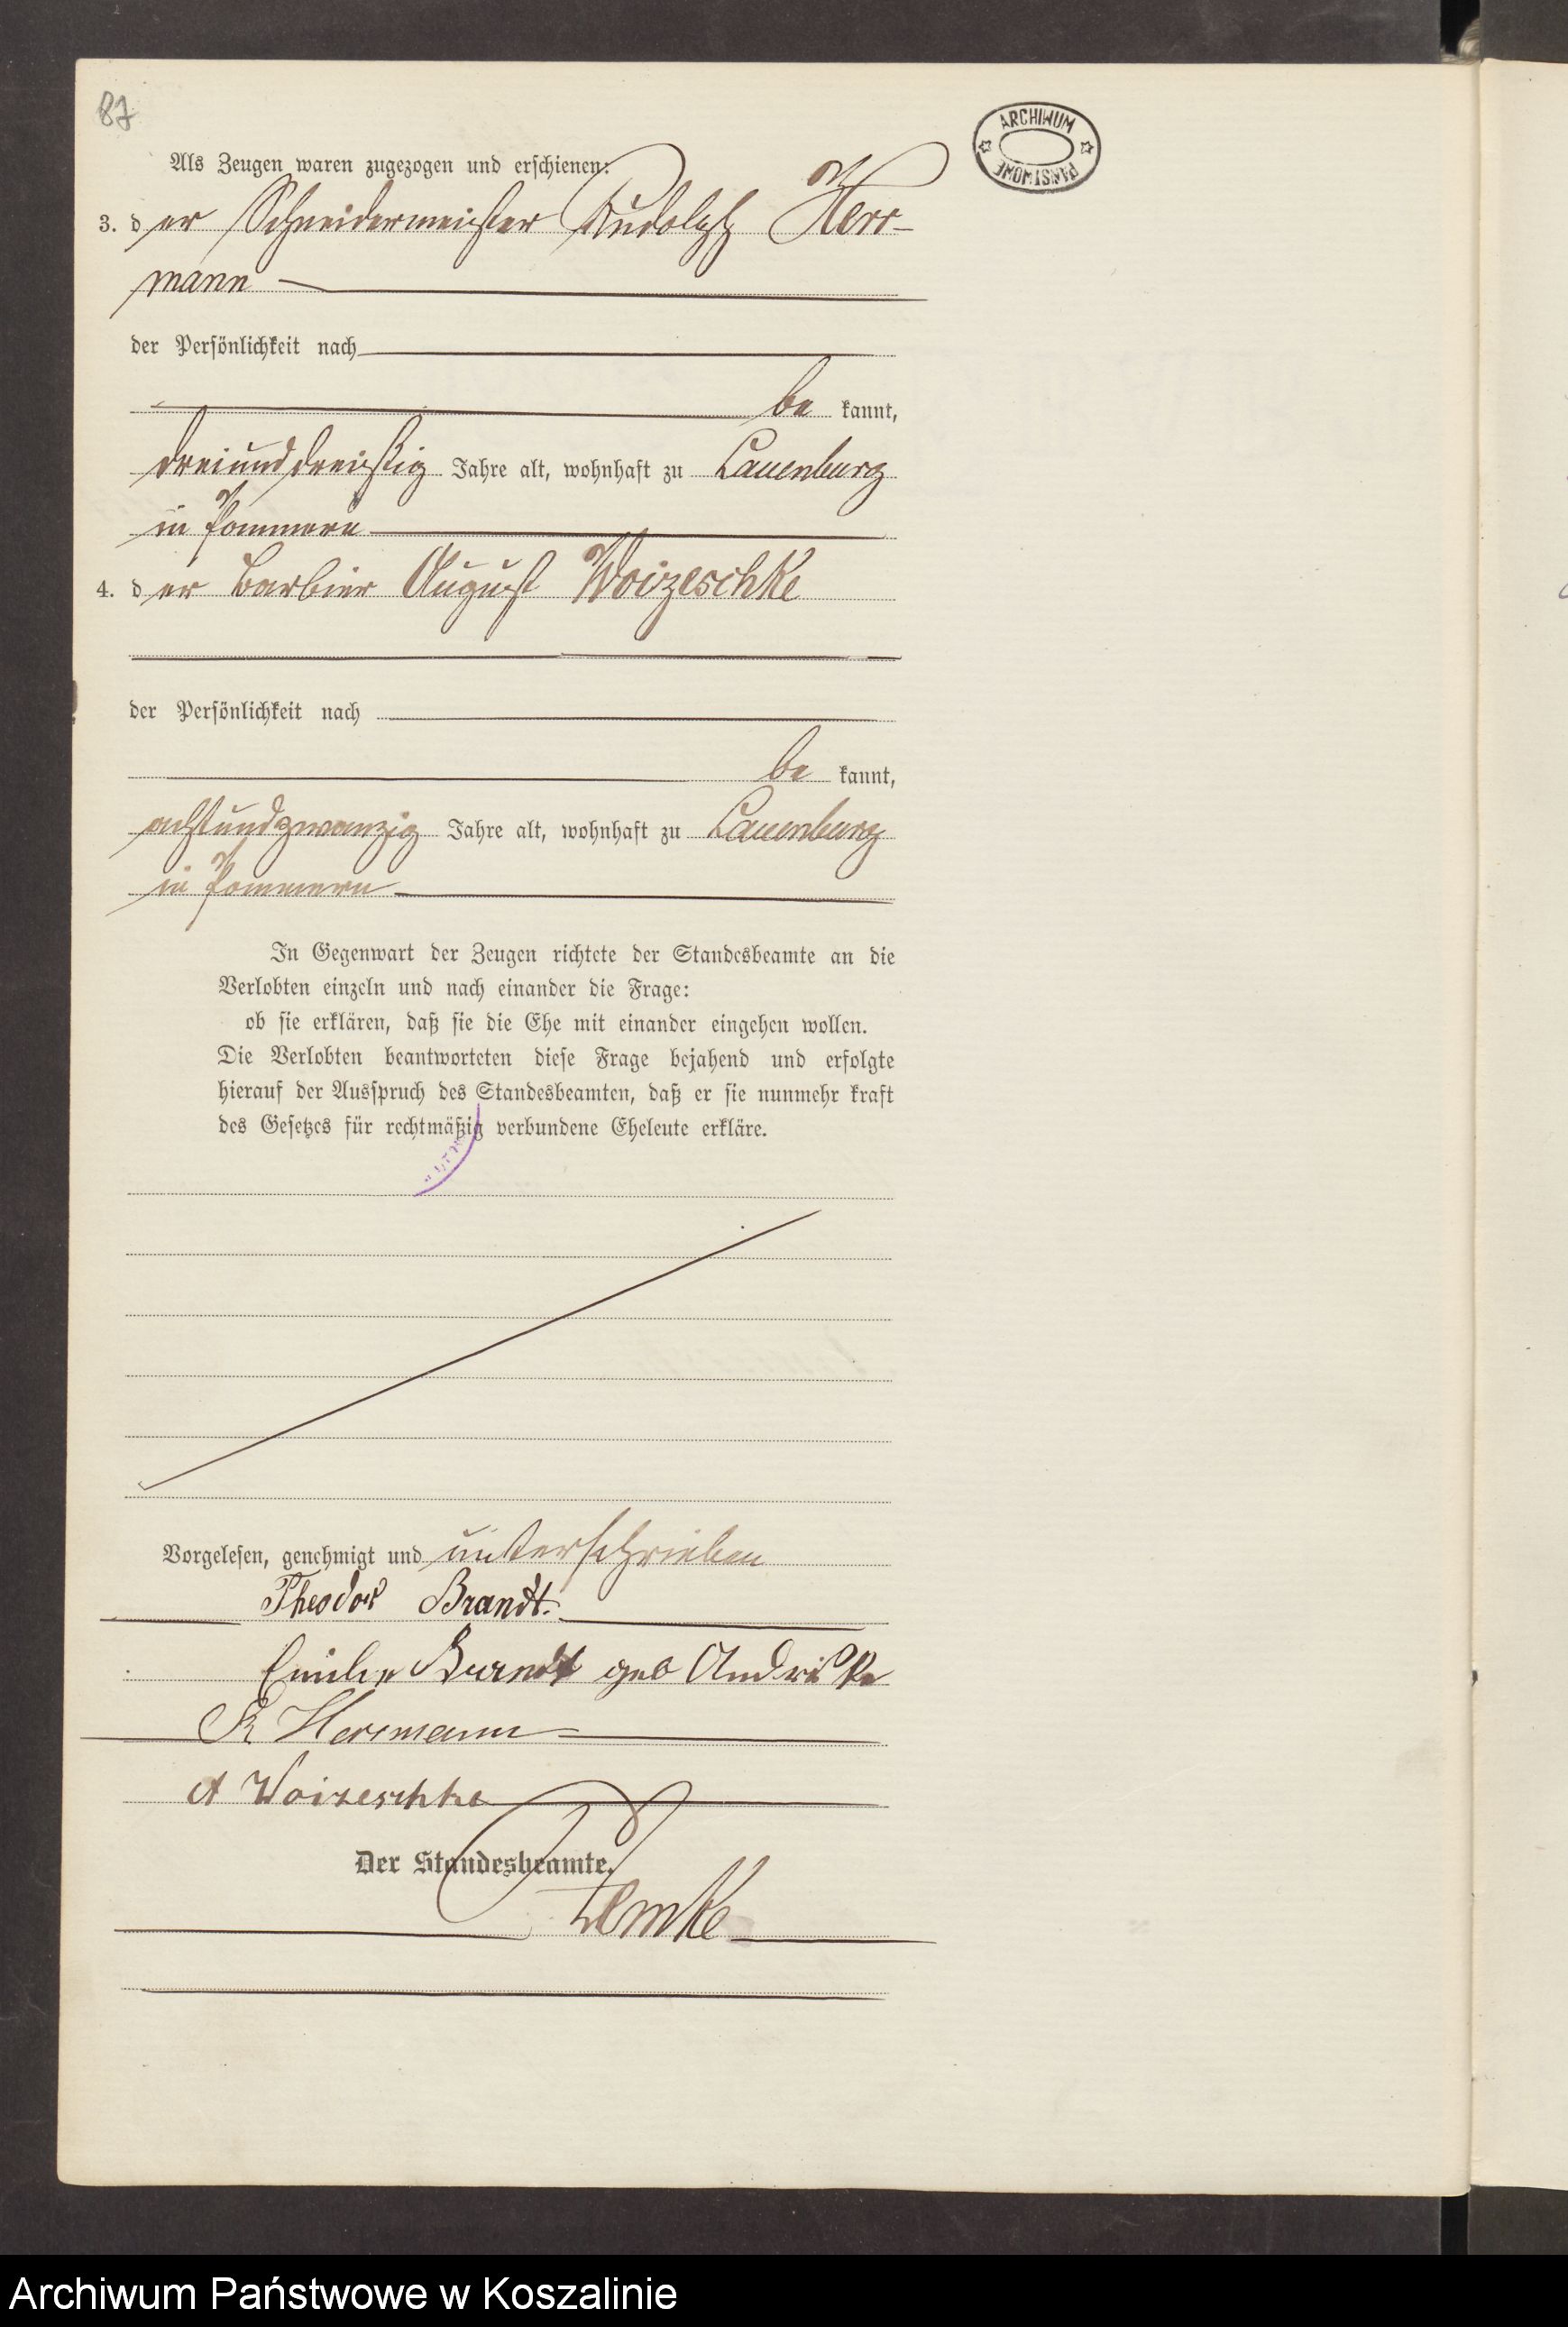 87
ARCHIWUM
PAŃSTWOWE
Als Zeugen waren zugezogen und erschienen:
3. der Schneidermeister Rudolph Herr-
mann
der Persönlichkeit nach
be kannt,
dreiunddreißig Jahre alt, wohnhaft zu Lauenburg
in Pommern
4. der Barbier August Woizeschke
der Persönlichkeit nach
be kannt,
achtundzwanzig Jahre alt, wohnhaft zu Lauenburg
in Pommern
In Gegenwart der Zeugen richtete der Standesbeamte an die
Verlobten einzeln und nach einander die Frage:
ob sie erklären, daß sie die Ehe mit einander eingehen wollen.
Die Verlobten beantworteten diese Frage bejahend und erfolgte
hierauf der Ausspruch des Standesbeamten, daß er sie nunmehr kraft
des Gesetzes für rechtmäßig verbundene Eheleute erkläre.
Vorgelesen, genehmigt und unterschrieben
Theodor Brandt.
Emilie Brandt geb Andriske
R Herrmann
A Woizeschke
Der Standesbeamte.
Zemke
Archiwum Państwowe w Koszalinie